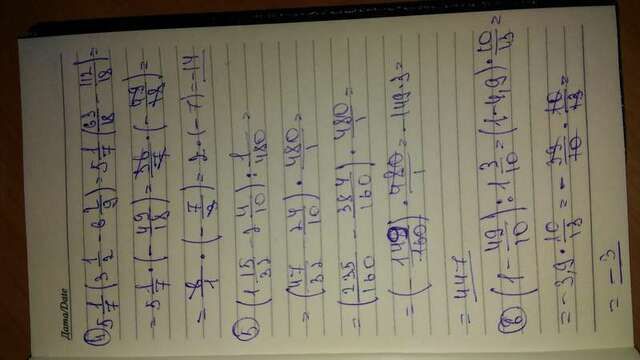 Дата/Date
4) 5 1/7 (3 1/2 - 6 2/9) = 5 1/7 (63/18 - 112/18) =
= 5 1/7 · (- 49/18) = 36/7 · (- 49/18) =
= 2/1 · (- 7/1) = 2 · (-7) = -14
5) (1 15/32 - 2 4/10) : 1/480 =
= (47/32 - 24/10) · 480/1 =
= (235/160 - 384/160) · 480/1 =
= (- 149/160) · 480/1 = -149·3 =
= 447
6) (1 - 49/10) : 1 3/10 = (1-4,9) · 10/13 =
= -3,9 · 10/13 = - 39/10 · 10/13 =
= -3